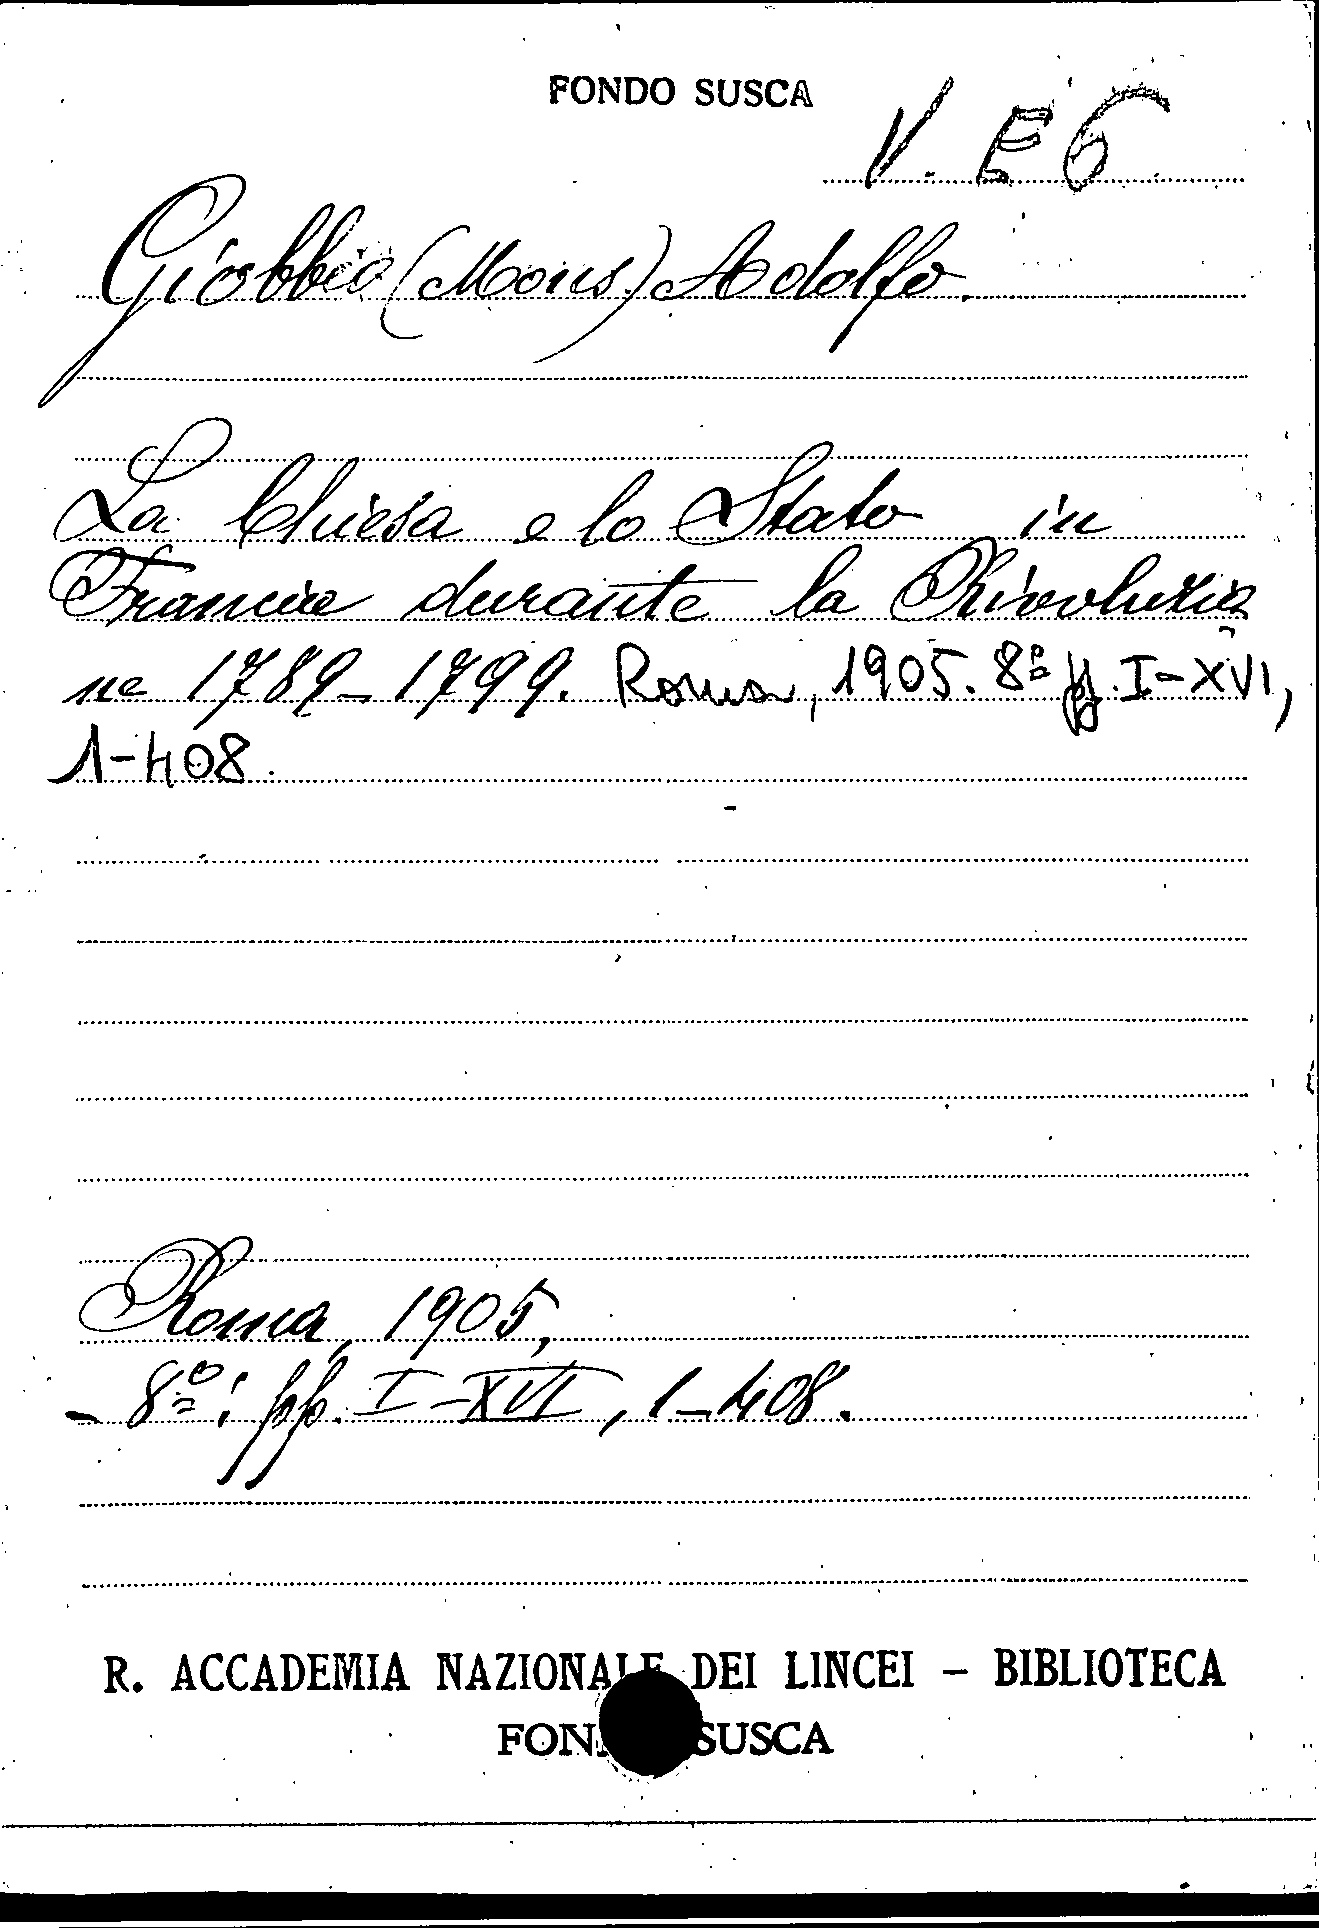 FONDO SUSCA
V. E 6
Giobbio (Mons) Adolfo.
La Chiesa e lo Stato in
Francia durante la Rivoluzio
ne 1789-1799. Roma, 1905. 8º pp. I-XVI,
1-408.
Roma, 1905,
- 8º: pp. I-XVI, 1-408.
R. ACCADEMIA NAZIONALE DEI LINCEI - BIBLIOTECA
FONDO SUSCA